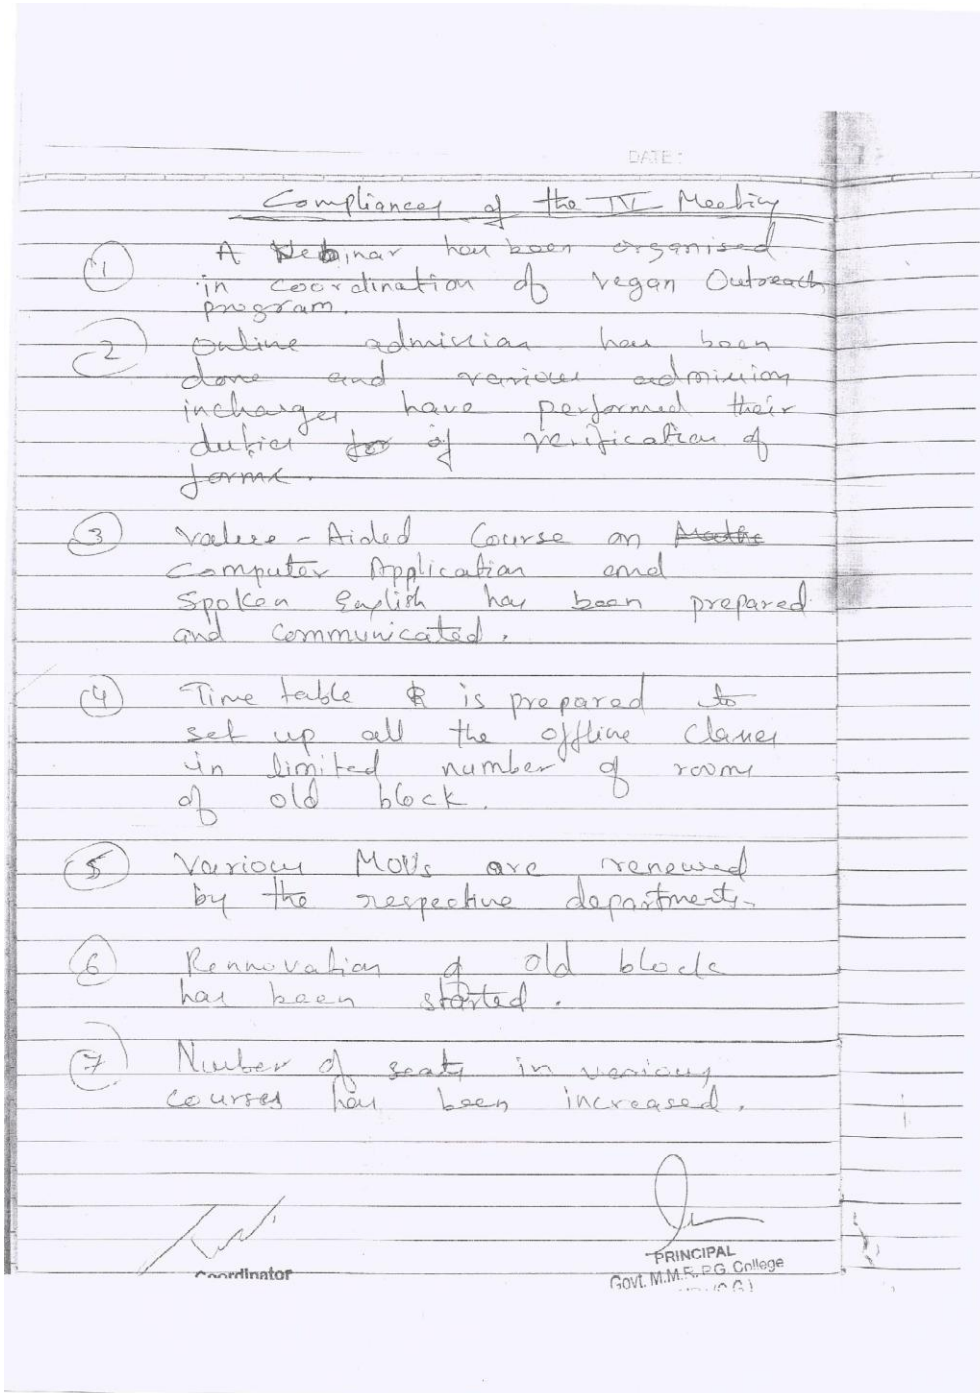 DATE:
Compliances of the IV Meeting
1 A Webinar has been organised
in coordination of Vegan Outreach
program.
2 Online admission has been
done and various admission
incharges have performed their
duties for of verification of
forms.
3 Value-Aided Course on Maths
Computer Application and
Spoken English has been prepared
and communicated.
4 Time table is prepared to
set up all the offline classes
in limited number of rooms
of old block.
5 Various MOUs are renewed
by the respective departments.
6 Rennovation of old block
has been started.
7 Number of seats in various
courses has been increased.
Coordinator
PRINCIPAL
Govt. M.M.R. P.G. College